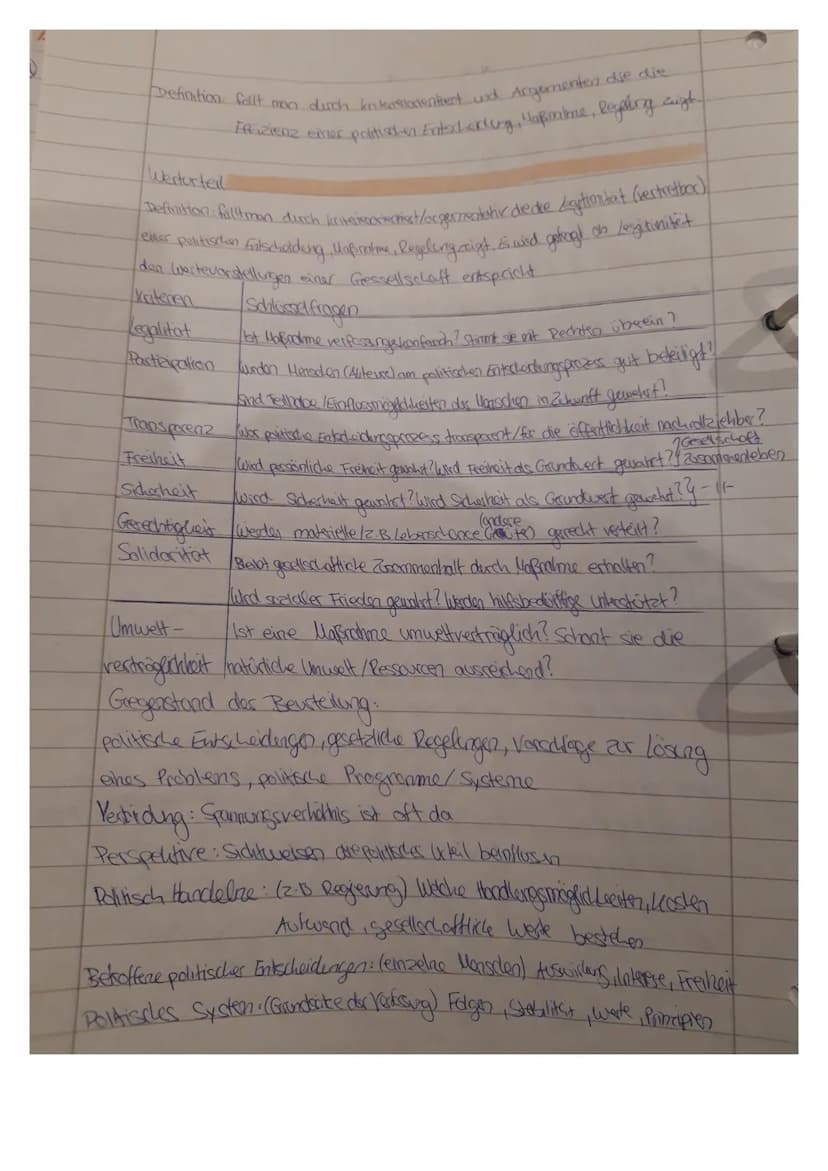 Definition: fällt man durch kriterienorientiert und Argumenten die die
Effizienz einer politischen Entscheidung, Maßnahme, Regelung zeigt.
Werturteil
Definition: fällt man durch kriterienorientiert/argumentativ die die Legitimität (vertretbar)
einer politischen Entscheidung, Maßnahme, Regelung zeigt. Es wird gefragt ob Legitimität
den Wertevorstellungen einer Gessellschaft entspricht
Kriterien Schlüsselfragen
Legalität Ist Maßnahme verfassungskonform? Stimmt sie mit Rechten überein?
Partizipation Wurden Menschen (Akteure) am politischen Entscheidungsprozess gut beteiligt?
Sind Teilhabe/Einflussmöglichkeiten der Menschen in Zukunft gewahrt?
Transparenz War politische Entscheidungsprozess transparent/für die öffentlichkeit nachvollziehbar?
Freiheit Wird persönliche Freiheit gewahrt? Wird Freiheit als Grundwert gewahrt? } Gesellschaft Zusammenleben
Sicherheit Wird Sicherheit gewahrt? Wird Sicherheit als Grundwert gewahrt? } -11-
Gerechtigkeit Werden materielle/z.B Lebenschance (andere) gerecht verteilt?
Solidarität Bleibt gesellschaftliche Zusammenhalt durch Maßnahme erhalten?
Wird sozialer Frieden gewahrt? Werden hilfsbedürftige unterstützt?
Umwelt- Ist eine Maßnahme umweltverträglich? Schont sie die
verträglichkeit natürliche Umwelt/Ressourcen ausreichend?
Gegenstand der Beurteilung:
politische Entscheidungen, gesetzliche Regelungen, Vorschläge zur Lösung
eines Problems, politische Programme/Systeme
Verbidung: Spannungsverhältnis ist oft da
Perspektive: Sichtweisen die politisches Urteil beinflussen
Politisch Handelne: (z.B Regierung) Welche Handlungsmöglichkeiten, Kosten
Aufwand, gesellschaftliche Werte bestehen
Betroffene politischer Entscheidungen: (einzelne Menschen) Auswirkung, Interesse, Freiheit
Politisches System: (Grundsätze der Verfassung) Folgen, Stabilität, Werte, Prinzipien